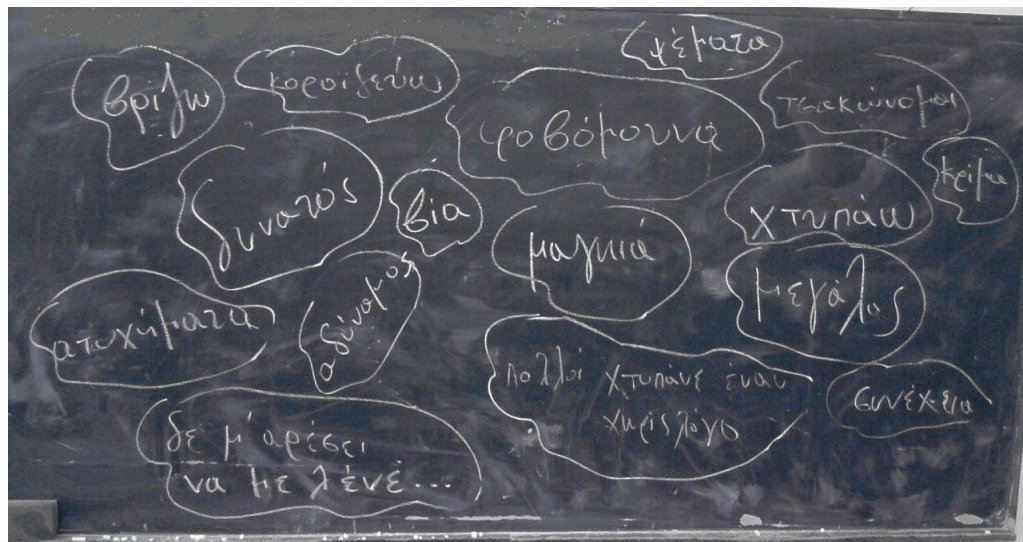 ψέματα
βρίζω
κοροϊδεύω
τσακώνομαι
φοβόμουνα
κρίμα
δυνατός
βία
χτυπάω
μαγκιά
μεγάλος
ατυχήματα
αδύναμος
πολλοί χτυπάνε έναν
χωρίς λόγο
συνέχεια
δε μ' αρέσει
να με λένε...